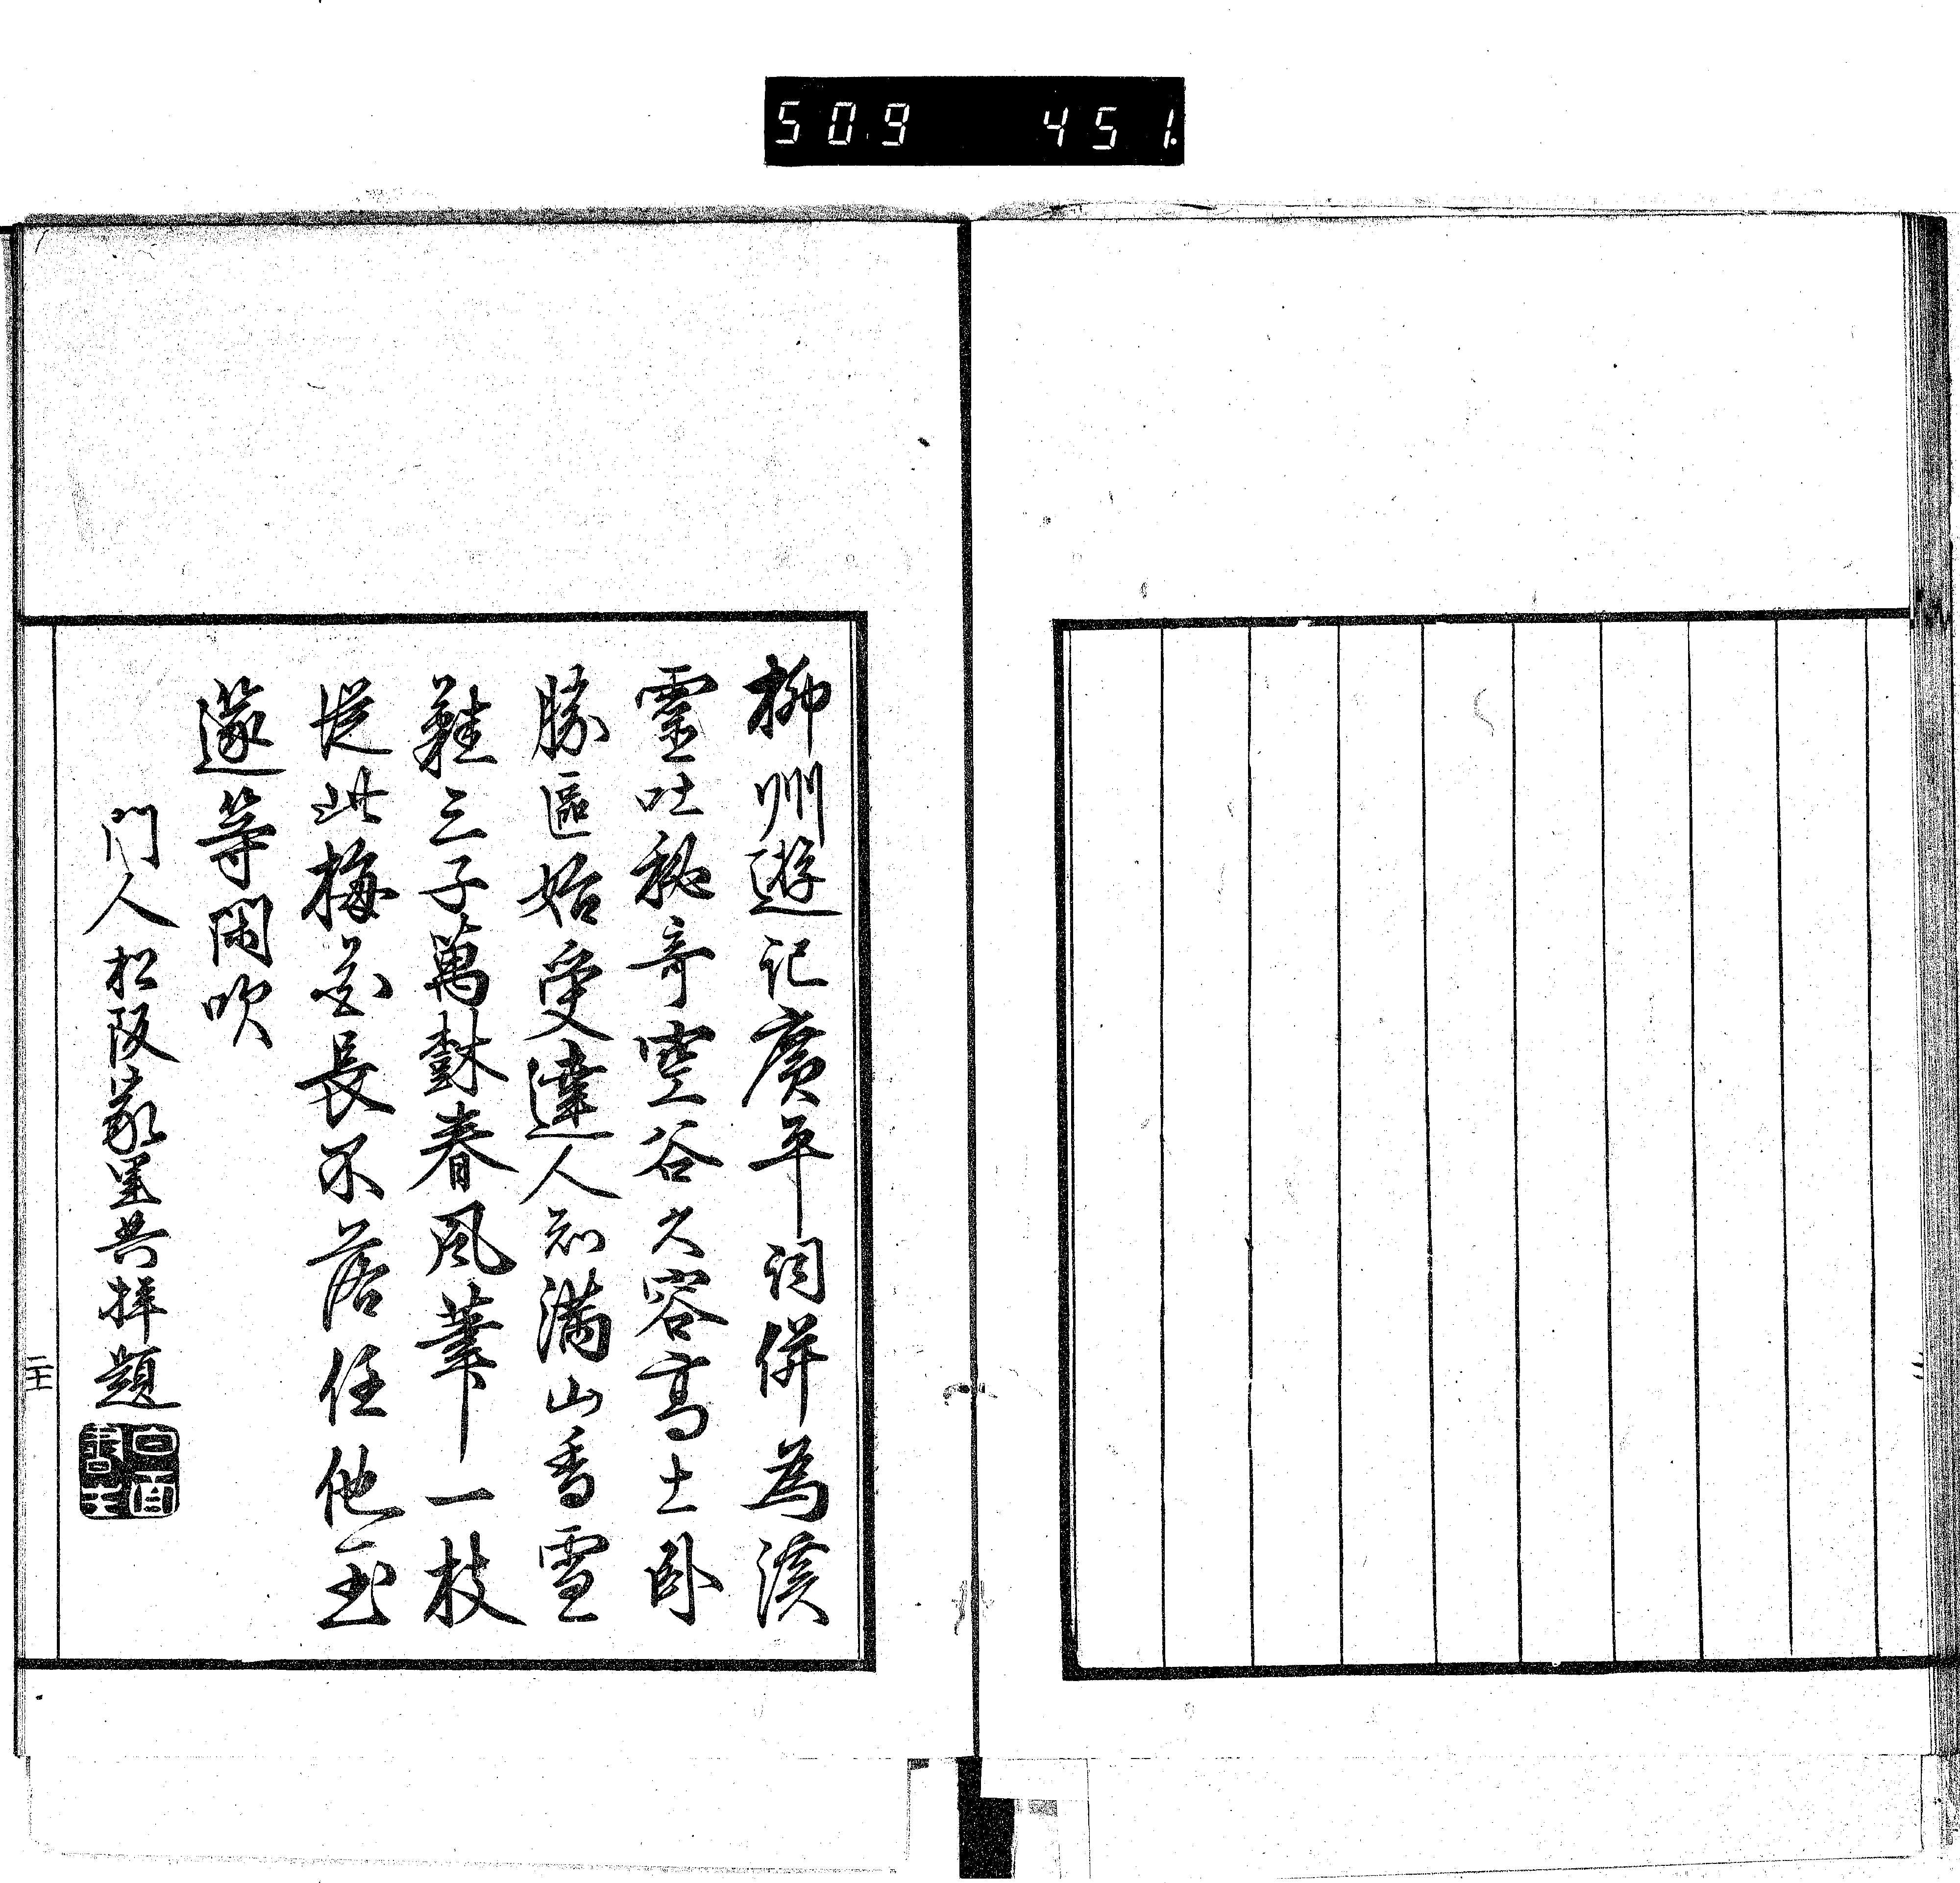 509 451
柳州遊記廣平詞併為溪
靈吐秘奇空谷久容高士臥
勝區始受達人知滿山香雪
鞋三子萬樹春風筆一枝
從此梅花長不落任他玉
篴等閑吹
門人松阪拜題
二十一